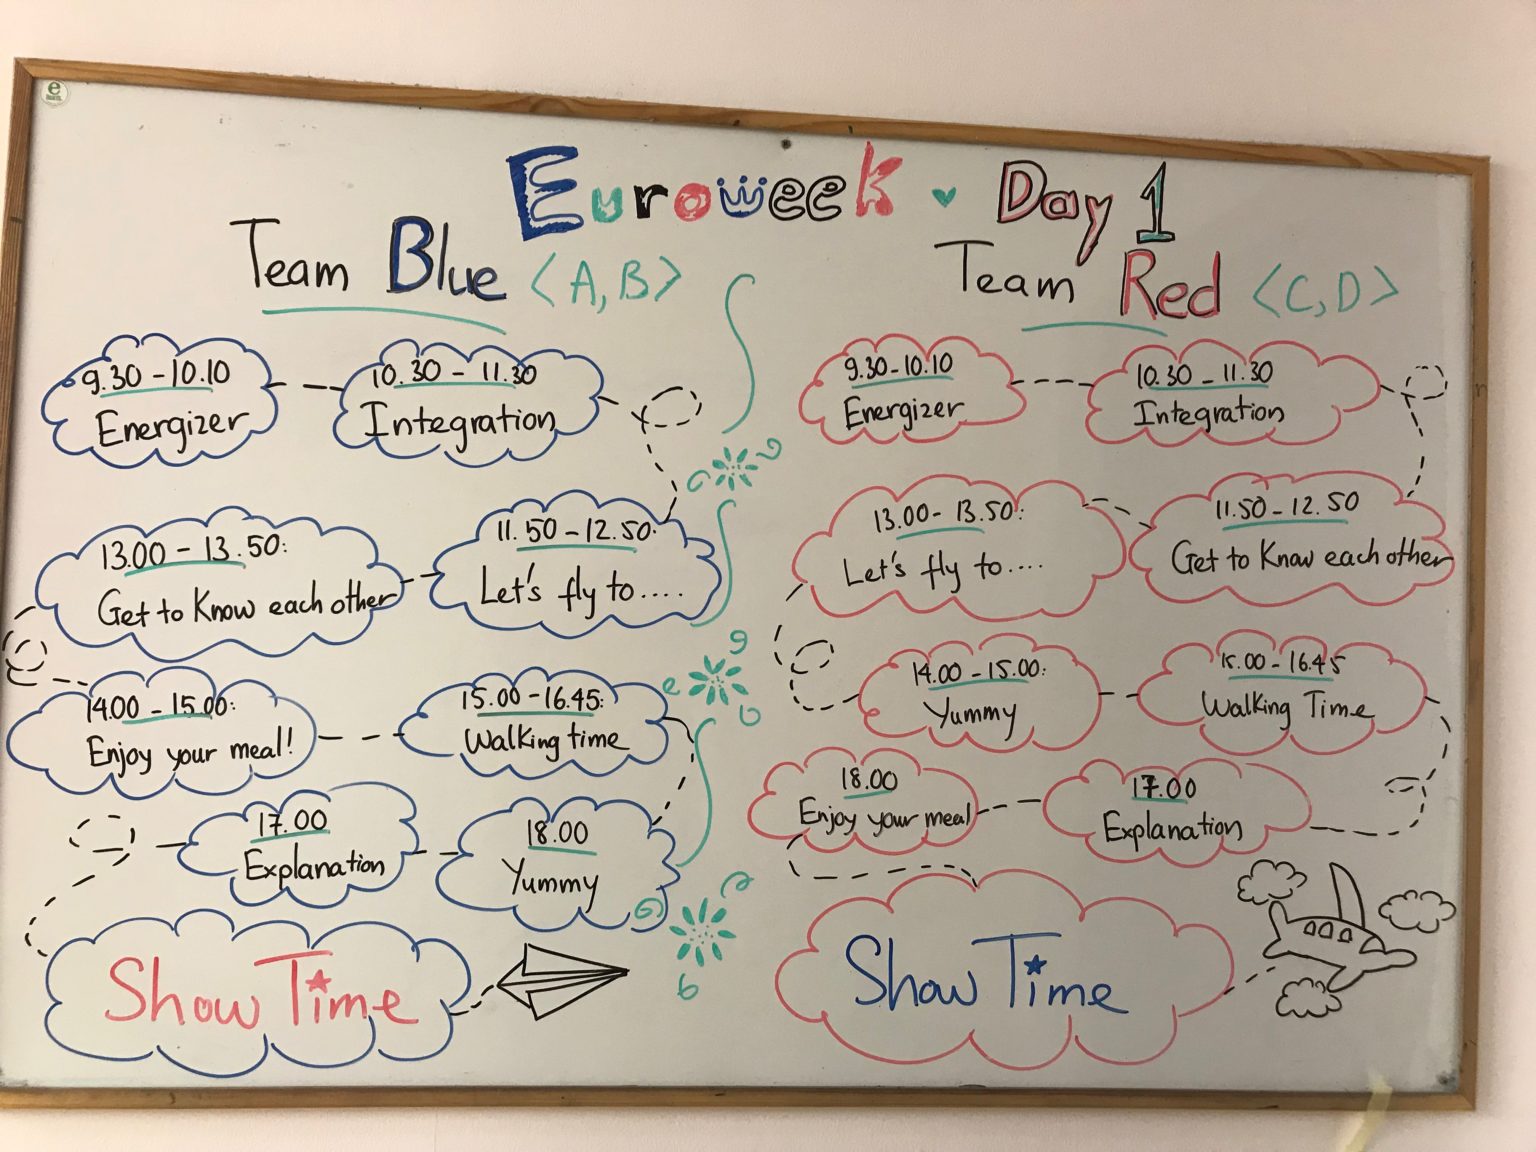 Euroweek Day 1
Team Blue <A,B>
9.30 - 10.10
Energizer
10.30 - 11.30
Integration
11.50 - 12.50:
Let's fly to....
13.00 - 13.50:
Get to Know each other
14.00 - 15.00:
Enjoy your meal!
15.00 - 16.45:
Walking time
18.00
Yummy
17.00
Explanation
Show Time
Team Red <C,D>
9.30 - 10.10
Energizer
10.30 - 11.30
Integration
11.50 - 12.50
Get to Know each other
13.00 - 13.50:
Let's fly to....
14.00 - 15.00:
Yummy
15.00 - 16.45
Walking Time
17.00
Explanation
18.00
Enjoy your meal
Show Time